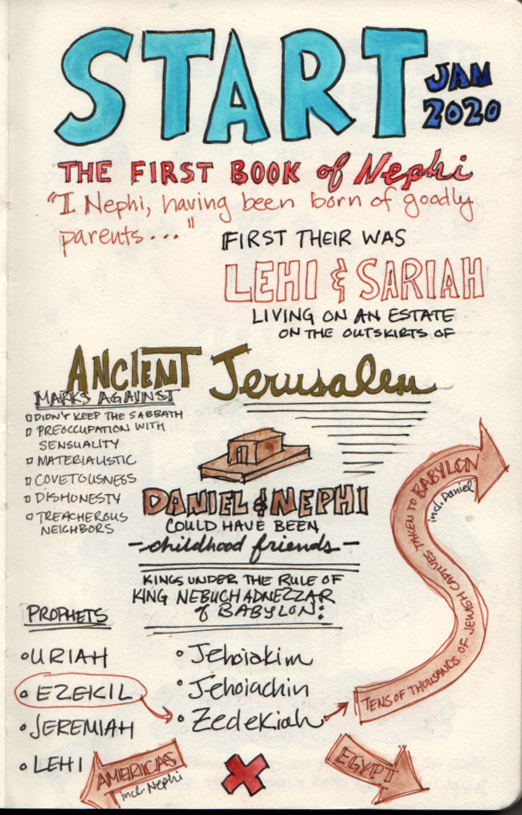 START
JAN
2020
THE FIRST BOOK of Nephi
"I Nephi, having been born of goodly
parents..."
FIRST THEIR WAS
LEHI & SARIAH
LIVING ON AN ESTATE
ON THE OUTSKIRTS OF
ANCIENT Jerusalem
MARKS AGAINST
DIDN'T KEEP THE SABBATH
PREOCCUPATION WITH
SENSUALITY
MATERIALISTIC
COVETOUSNESS
DISHONESTY
TREACHEROUS
NEIGHBORS
DANIEL & NEPHI
COULD HAVE BEEN
-childhood friends-
KINGS UNDER THE RULE OF
KING NEBUCHADNEZZAR
of BABYLON:
PROPHETS
URIAH
EZEKIL
JEREMIAH
LEHI
Jehoiakim
Jehoiachin
Zedekiah
TENS OF THOUSANDS OF JEWISH CAPTIVES TAKEN TO BABYLON
incl. Daniel
AMERICAS
incl. Nephi
EGYPT